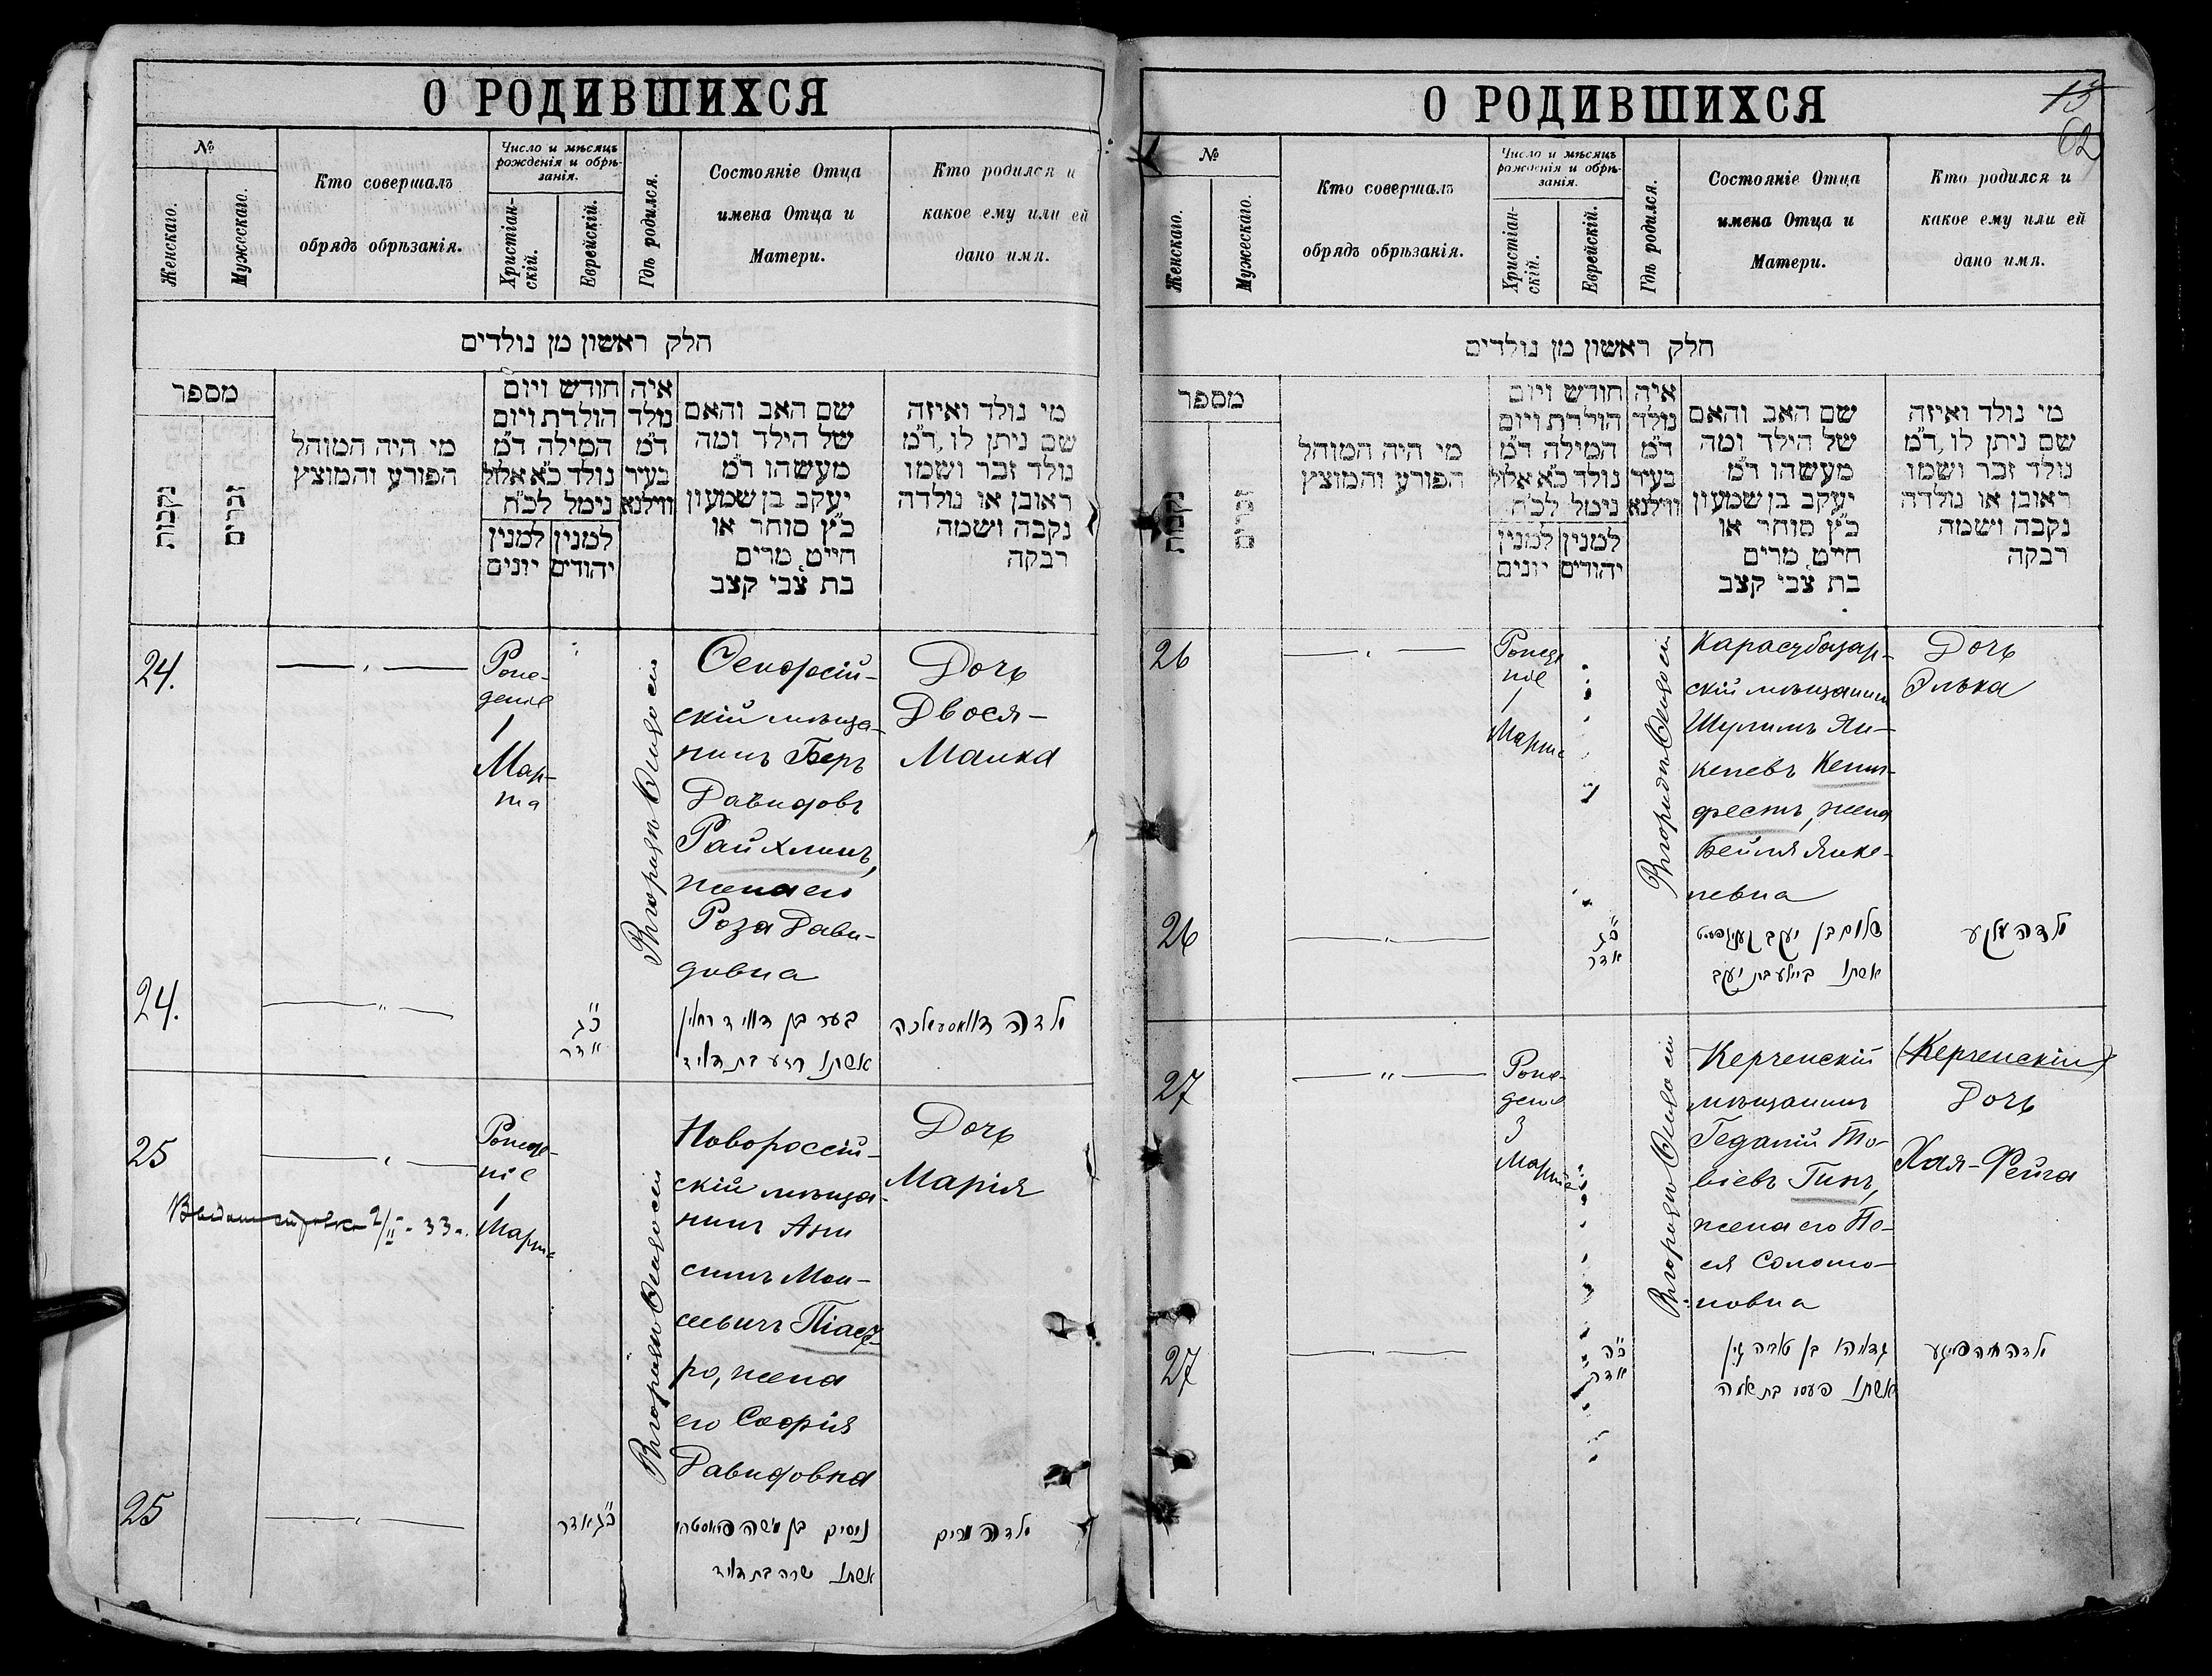 О РОДИВШИХСЯ
№
Женскаго.
Мужескаго.
Кто совершалъ
обрядъ обрѣзанія.
Число и мѣсяцъ
рожденія и обрѣ-
занія.
Христіан-
скій.
Еврейскій.
Гдѣ родился.
Состояніе Отца
имена Отца и
Матери.
Кто родился и
какое ему или ей
дано имя.
חלק ראשון מן נולדים
מספר
נקבות
זכרים
מי היה המוהל
הפורע והמוצץ
חודש ויום
הולדת ויום
המילה ד״מ
נולד כ״א אלול
נימל לכ״ח
למנין
יונים
למנין
יהודים
איה
נולד
ד״מ
בעיר
ווילנא
שם האב והאם
של הילד ומה
מעשהו ד״מ
יעקב בן שמעון
כ״ץ סוחר או
חייט, מרים
בת צבי קצב
מי נולד ואיזה
שם ניתן לו, ד״מ
נולד זכר ושמו
ראובן או נולדה
נקבה ושמה
רבקה
24.
Рож-
деніе
1
Мар-
та
скій мѣща-
нинъ Беръ
Давидовъ
Райхлинъ,
жена его
Роза Дави-
довна
Дочь
Двося-
Малка
24.
כ״ג
אדר
בער בן דוויד רחלין
אשתו רוזע בת דוויד
ילדה דוואסע מלכה
25
Рожде-
ніе
1
Марта
2/II - 33 г.
Новороссій-
скій мѣща-
нинъ Ани
симъ Мои-
сеевичъ Піаст-
ро, жена
его Софія
Давидовна
Дочь
Марія
25
כ״ג אדר
ניסים בן משה פיאסטרו
אשתו שרה בת דוויד
ילדה מרים
О РОДИВШИХСЯ
13
62
№
Женскаго.
Мужескаго.
Кто совершалъ
обрядъ обрѣзанія.
Число и мѣсяцъ
рожденія и обрѣ-
занія.
Христіан-
скій.
Еврейскій.
Гдѣ родился.
Состояніе Отца
имена Отца и
Матери.
Кто родился и
какое ему или ей
дано имя.
חלק ראשון מן נולדים
מספר
נקבות
זכרים
מי היה המוהל
הפורע והמוצץ
חודש ויום
הולדת ויום
המילה ד״מ
נולד כ״א אלול
נימל לכ״ח
למנין
יונים
למנין
יהודים
איה
נולד
ד״מ
בעיר
ווילנא
שם האב והאם
של הילד ומה
מעשהו ד״מ
יעקב בן שמעון
כ״ץ סוחר או
חייט, מרים
בת צבי קצב
מי נולד ואיזה
שם ניתן לו, ד״מ
נולד זכר ושמו
ראובן או נולדה
נקבה ושמה
רבקה
26
Рожде
ніе
1
Марта
Карасубазар-
скій мѣщанинъ
Шулимъ Ян-
келевъ Кениг-
фестъ, жена
Бейля Янке-
левна
Дочь
Элька
26
כ״ג
אדר
שלום בן יעקב
אשתו ביילע בת יעקב
ילדה עלקע
27
Рож-
деніе
3
Марта
Керченскій
мѣщанинъ
Гедалій То-
віевъ Гинъ,
жена его Пе-
ся Соломо-
новна
(Керченскій)
Дочь
Хая-Фейга
27
כ״ה
אדר
גדליהו בן טוביה גין
אשתו פעסע בת שלמה
ילדה חיה פייגע